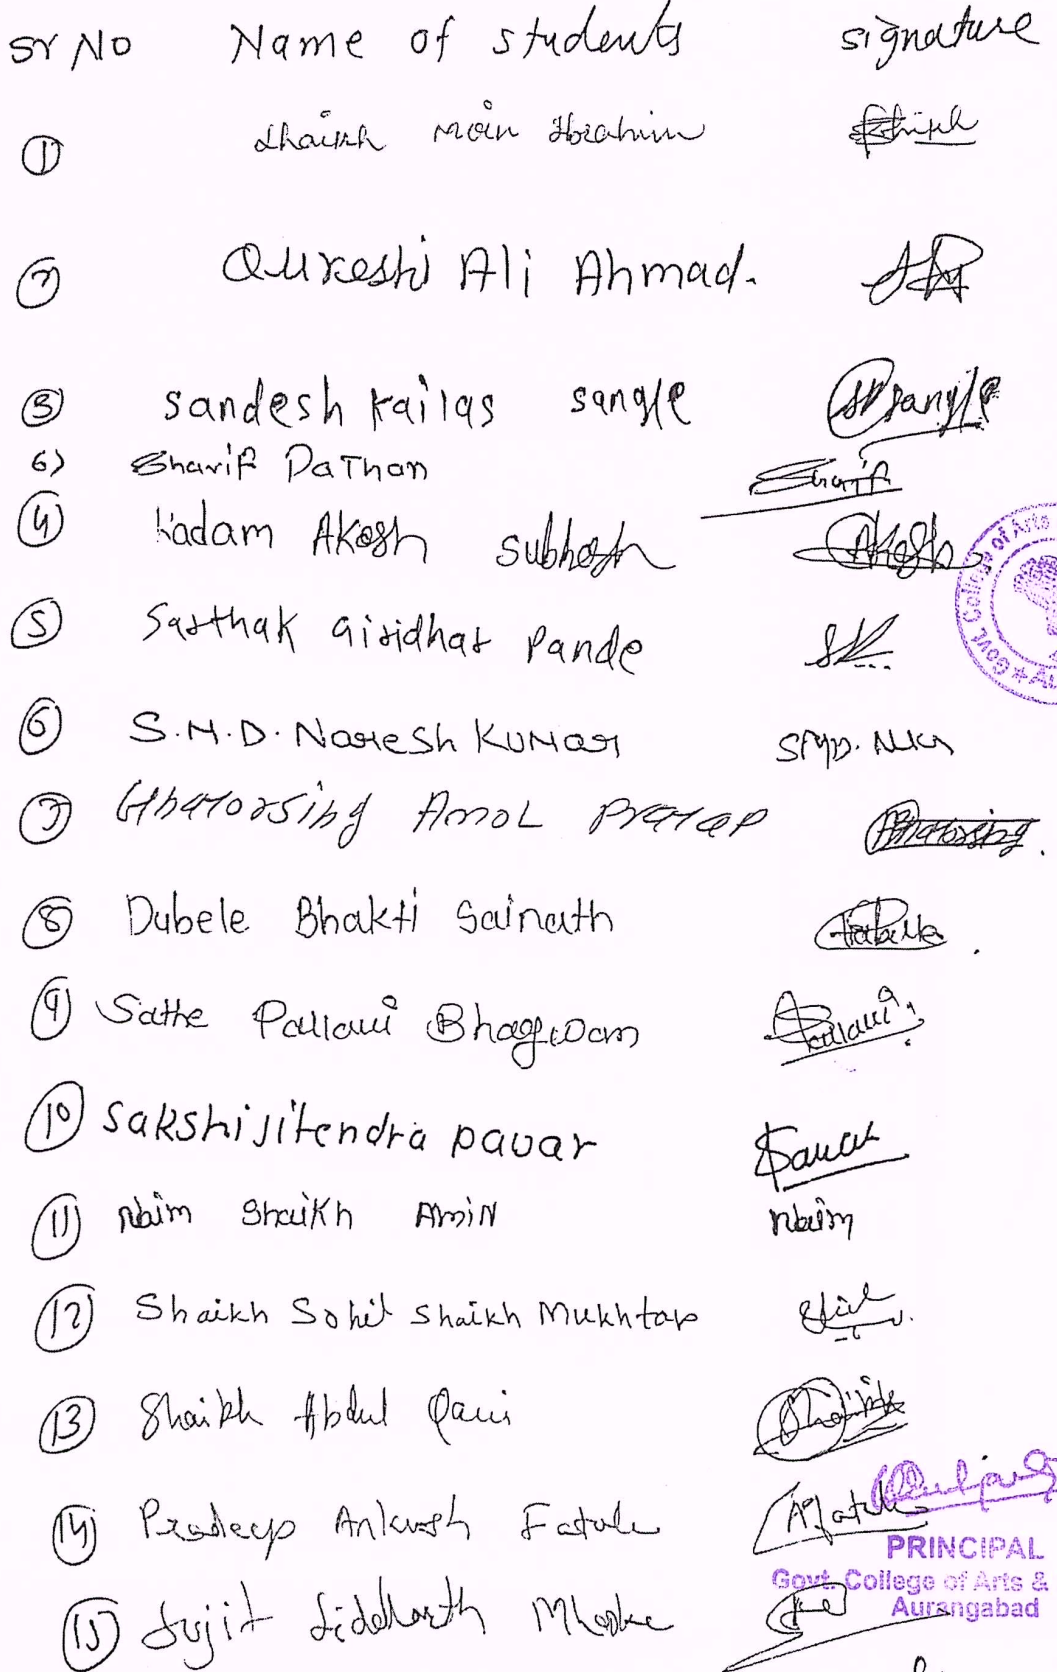 Sr No Name of students signature
① Shaikh Moin Ibrahim Shaikh
② Qureshi Ali Ahmad.
③ sandesh kailas sangle sangle
6) Sharif PaThan Sharif
④ Kadam Akash subhash Akash
⑤ Sarthak Giridhar Pande
⑥ S.M.D. Naresh KUMAR SMD. NKR
⑦ Ghatorsing AmoL Pratap Ghatorsing.
⑧ Dubele Bhakti Sainath
⑨ Sathe Pallavi Bhagwan Pallavi
⑩ Sakshi jitendra pavar Pavar
⑪ Naim Shaikh AmiN Naim
⑫ Shaikh Sohil Shaikh Mukhtar
⑬ Shaikh Abdul Qavi Shaikh
⑭ Pradeep Ankush Fatale
⑮ Sujit Siddharth Mhaske
Govt. College of Arts
PRINCIPAL
Govt. College of Arts &
Aurangabad